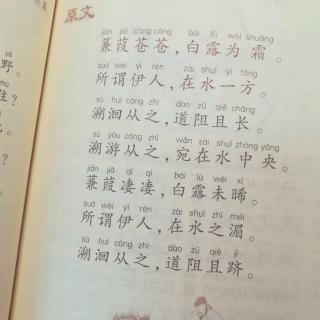 原文
jiān jiā cāng cāng bái lù wéi shuāng
蒹葭苍苍，白露为霜。
suǒ wèi yī rén zài shuǐ yì fāng
所谓伊人，在水一方。
sù huí cóng zhī dào zǔ qiě cháng
溯洄从之，道阻且长。
sù yóu cóng zhī wǎn zài shuǐ zhōng yāng
溯游从之，宛在水中央。
jiān jiā qī qī bái lù wèi xī
蒹葭凄凄，白露未晞。
suǒ wèi yī rén zài shuǐ zhī méi
所谓伊人，在水之湄。
sù huí cóng zhī dào zǔ qiě jī
溯洄从之，道阻且跻。
yě
野。